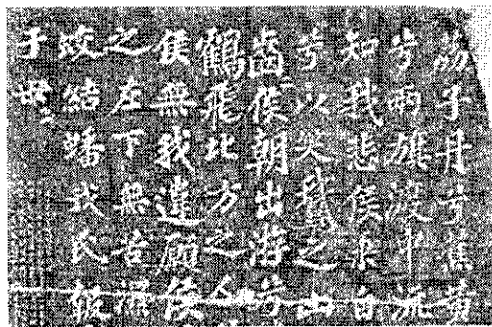 荔子丹兮蕉黃
兮兩旗渡中流
知我悲侯乘白
兮以笑鵝之山
齒侯朝出游兮
鶴飛北方之人
侯無我違願侯
之左下無苦濕
蛟結蟠我民報
于世〻